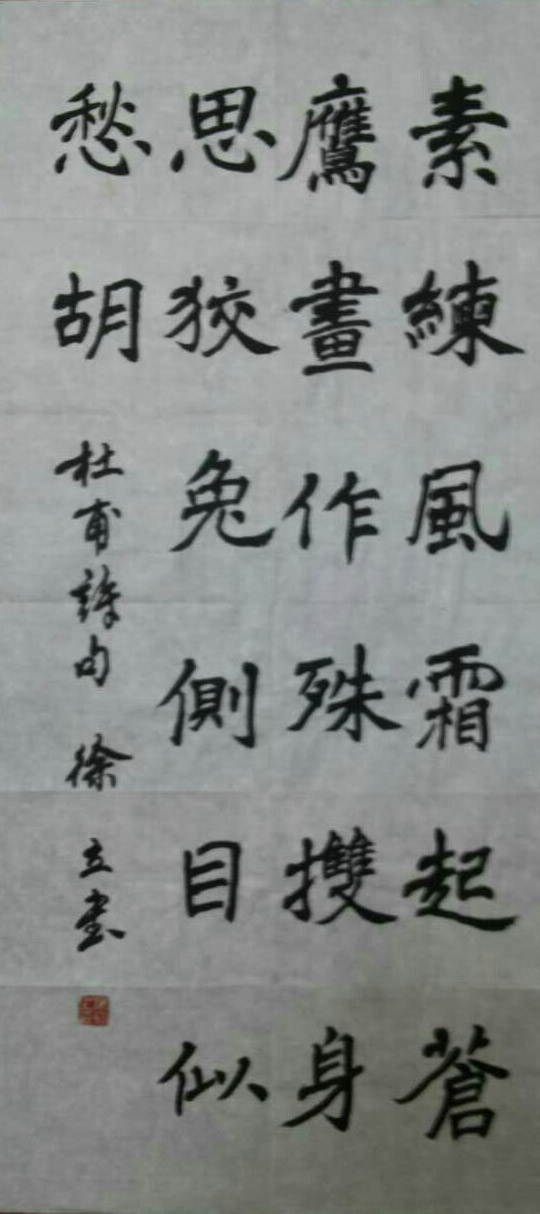 素練風霜起蒼
鷹畫作殊㩳身
思狡兔側目似
愁胡
杜甫詩句 徐立書